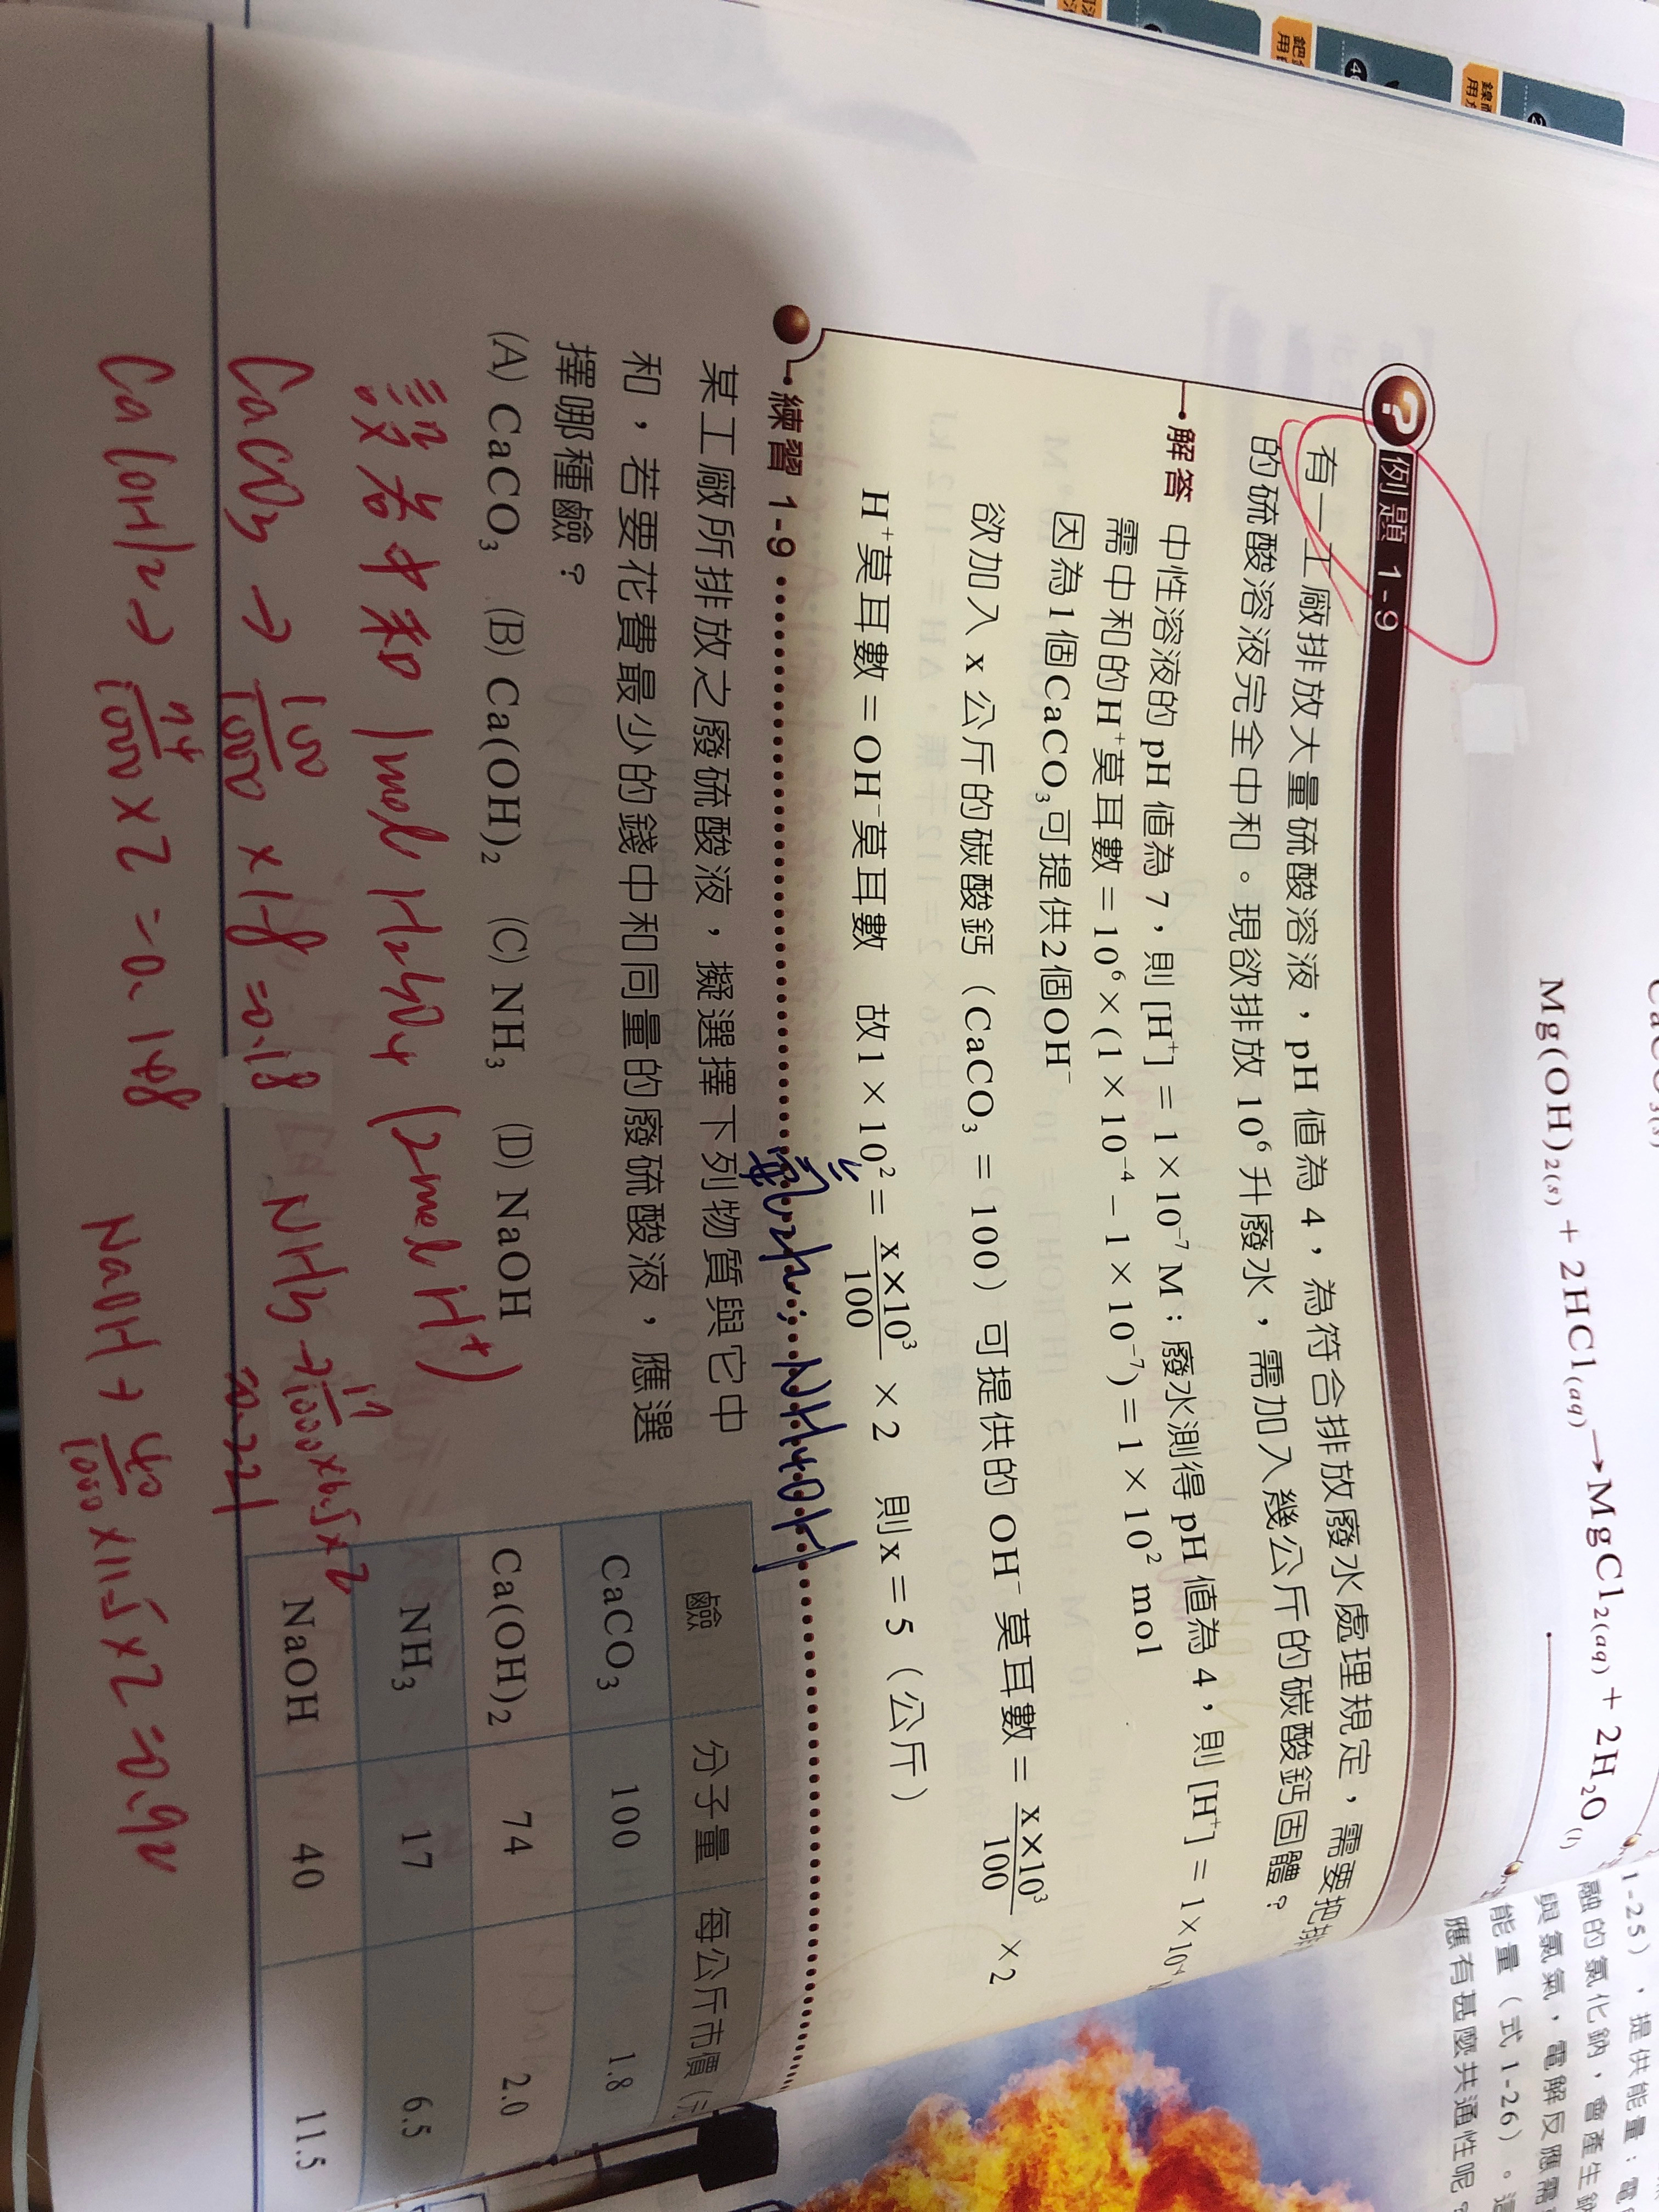 Mg(OH)₂₍ₛ₎ + 2HCl₍aq₎ → MgCl₂₍aq₎ + 2H₂O₍l₎
例題 1-9
有一工廠排放大量硫酸溶液，pH 值為 4，為符合排放廢水處理規定，需要把排
的硫酸溶液完全中和。現欲排放 10⁶ 升廢水，需加入幾公斤的碳酸鈣固體？
解答 中性溶液的 pH 值為 7，則 [H⁺] = 1 × 10⁻⁷ M；廢水測得 pH 值為 4，則 [H⁺] = 1 × 10⁻⁴
需中和的 H⁺ 莫耳數 = 10⁶ × (1 × 10⁻⁴ − 1 × 10⁻⁷) ≒ 1 × 10² mol
因為 1 個 CaCO₃ 可提供 2 個 OH⁻
欲加入 x 公斤的碳酸鈣（CaCO₃ = 100）可提供的 OH⁻ 莫耳數 = x×10³/100 × 2
H⁺ 莫耳數 = OH⁻ 莫耳數　故 1 × 10² = x×10³/100 × 2　則 x = 5（公斤）
練習 1-9
氨水: NH4OH
某工廠所排放之廢硫酸液，擬選擇下列物質與它中
和，若要花費最少的錢中和同量的廢硫酸液，應選
擇哪種鹼？
(A) CaCO₃　(B) Ca(OH)₂　(C) NH₃　(D) NaOH
鹼　分子量　每公斤市價
CaCO₃　100　1.8
Ca(OH)₂　74　2.0
NH₃　17　6.5
NaOH　40　11.5
設各中和 1mol H2SO4 (2mol H⁺)
CaCO3 → 100/1000 × 1.8 = 0.18
NH3 → 17/1000 × 6.5 × 2
≈0.221
Ca(OH)2 → 74/1000 × 2 = 0.148
NaOH → 40/1000 × 11.5 × 2 = 0.92
1-25），提供能量；電
融的氯化鈉，會產生鈉
與氯氣，電解反應需
能量（式 1-26）。這
應有甚麼共通性呢？